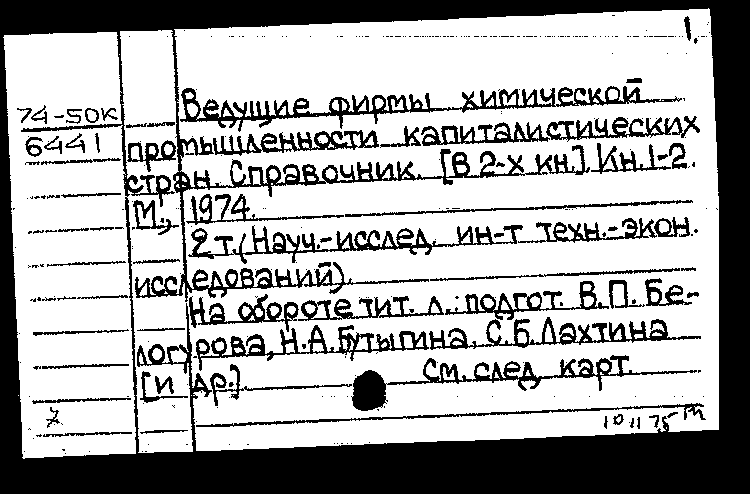 1.
74-50к
6441
Ведущие фирмы химической
промышленности капиталистических
стран. Справочник. [В 2-х кн.]. Кн. 1-2.
М., 1974.
2 т. (Науч.-исслед. ин-т техн.-экон.
исследований).
На обороте тит. л.: подгот. В.П. Бе-
логурова, Н.А. Бутыгина, С.Б. Лахтина
[и др.].
См. след. карт.
10 11 75